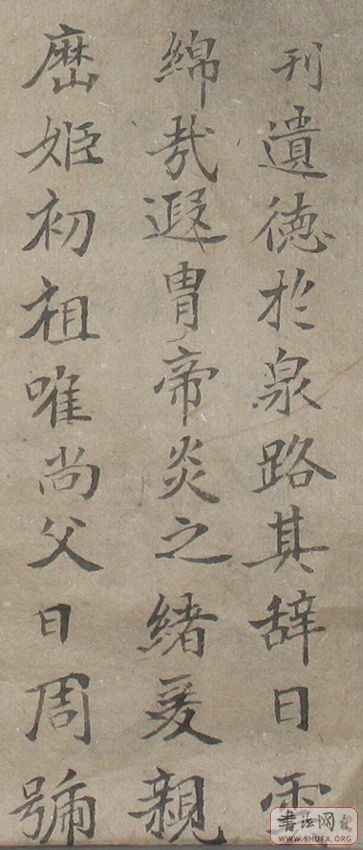 刊遺徳於泉路其辞曰
綿哉遐胄帝炎之緒爰親
歷姬初祖唯尚父曰周號
WWW.SHUFA.ORG